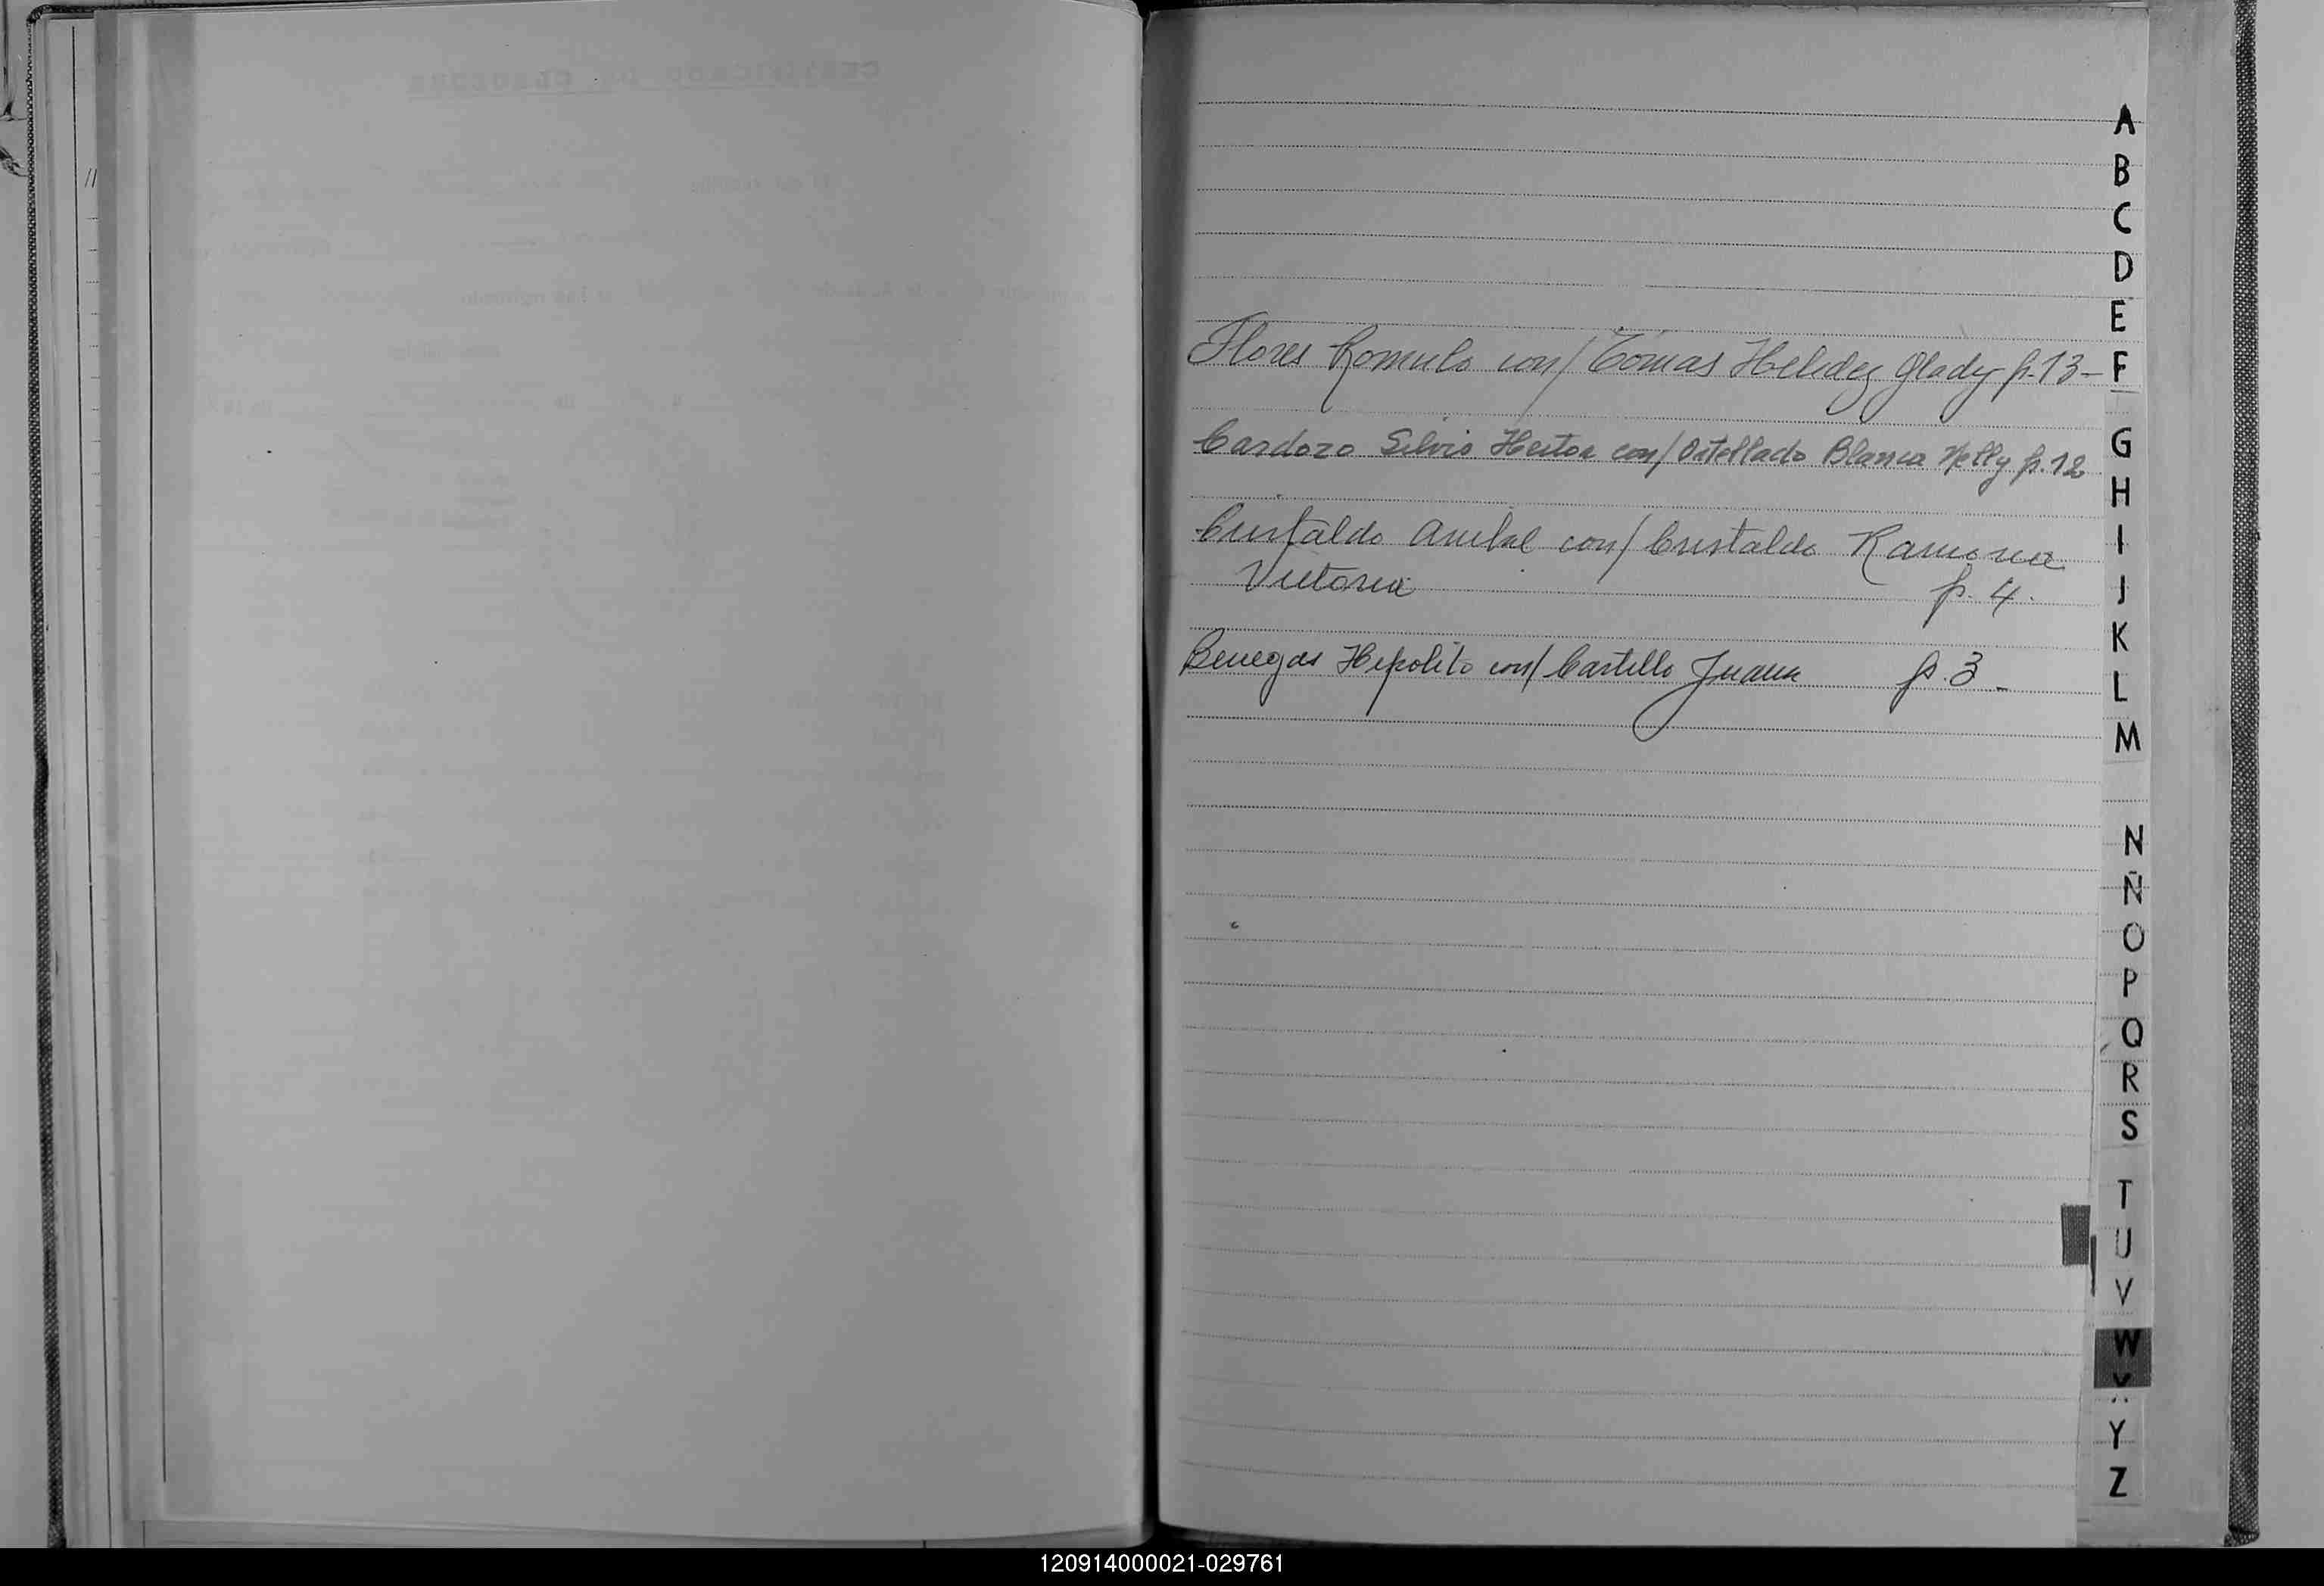 Flores Romulo con/ Tomas Helidez Glady p.13-
Cardozo Silvio Hector con/ Ostellado Blanca Nelly p.12
Cristaldo Anibal con/ Cristaldo Ramona
Victoria p. 4.
Benegas Hipolito con/ Castillo Juana p. 3 -
A
B
C
D
E
F
G
H
I
J
K
L
M
N
Ñ
O
P
Q
R
S
T
U
V
W
Y
Z
120914000021-029761